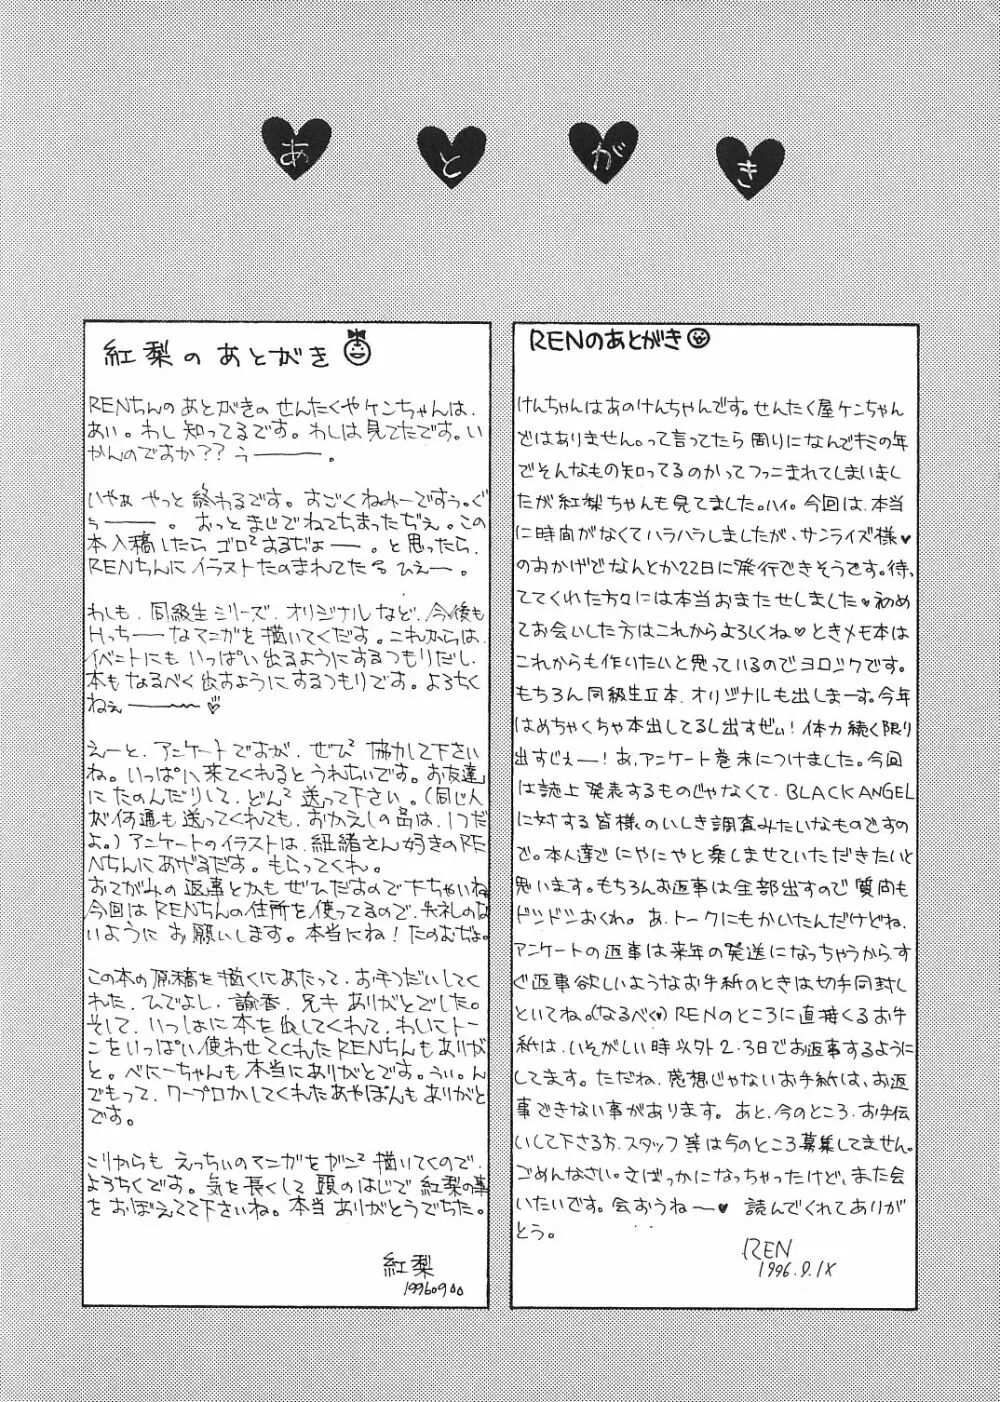 あとがき
紅梨のあとがき
RENちんのあとがきのせんたくやケンちゃんは、
あい。わし知ってるです。わしは見てたです。い
かんのですか?? うー――。
いやぁ やっと終わるです。すごくねみーですぅ。ぐ
ぅー――。おっとまじでねてちまったぢぇ。この
本入稿したらゴロ²するぢょー―。と思ったら、
RENちんにイラストたのまれてたる ひぇー―。
わしも、同級生シリーズ、オリジナルなど、今後も
Hっちー――なマンガを描いてくだす。これからは、
イベントにもいっぱい出るようにするつもりだし、
本もなるべく出すようにするつもりです。よろちく
ねぇー――〜
えーと、アンケートですが、ぜひ²協力して下さい
ね。いっぱい来てくれるとうれちいです。お友達
にたのんだりして、どん²送って下さい。(同じ人
が何通も送ってくれても、おかえしの品は、1つだ
よ。)アンケートのイラストは、紐緒さん好きのRE
Nちんにあげるだす。もらってくれ。
おてがみの返事とかもぜひだすので下ちゃいね
今回はRENちんの住所を使ってるので、失礼のな
いようにお願いします。本当にね!たのむぢょ。
この本の原稿を描くにあたって、お手つだいしてく
れた、ひでよし、諭香、兄キありがとでした。
そして、いっしょに本を出してくれて、わいにトー
こをいっぱい使わせてくれたRENちんもありが
と。べにーちゃんも本当にありがとです。うぃ。ん
でもって、ワープロかしてくれたあやぽんもありがと
です。
こりからも えっちぃのマンガをガン²描いてくので、
よろちくです。気を長くして頭のはじで紅梨の事
をおぼえてて下さいね。本当ありがとうでちた。
紅梨
RENのあとがき
けんちゃんはあのけんちゃんです。せんたく屋ケンちゃん
ではありません。って言ってたら周りになんでキミの年
でそんなもの知ってるのかってツッこまれてしまいまし
たが紅梨ちゃんも見てました。ハイ。今回は、本当
に時間がなくてハラハラしましたが、サンライズ様♥
のおかげでなんとか22日に発行できそうです。待っ
ててくれた方々には本当おまたせしました♥初め
てお会いした方はこれからよろしくね♥ときメモ本は
これからも作りたいと思っているのでヨロシクです。
もちろん同級生Ⅱ本、オリジナルも出しまーす。今年
はめちゃくちゃ本出してるし出すぜぃ!体力続く限り
出すじぇー―!あ、アンケート巻末につけました。今回
は誌上発表するものじゃなくて、BLACK ANGEL
に対する皆様のいしき調査みたいなものですの
で。本人達でにやにやと楽しませていただきたいと
思います。もちろんお返事は全部出すので質問も
ドシドシおくれ。あ、トークにもかいたんだけどね、
アンケートの返事は来年の発送になっちゃうからす
ぐ返事欲しいようなお手紙のときは切手同封し
といてね。(なるべく♥)RENのところに直接くるお手
紙は、いそがしい時以外2、3日でお返事するように
してます。ただね、感想じゃないお手紙は、お返
事できない事があります。あと、今のところ、お手伝
いして下さる方、スタッフ等は今のところ募集してません。
ごめんなさい。文ばっかになっちゃったけど、また会
いたいです。会おうねー―♥ 読んでくれてありが
とう。
REN
1996.9.18